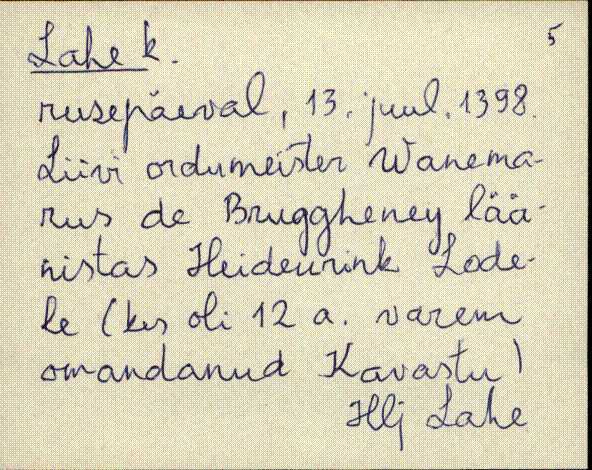 5
Lahe k.
rusepäeval, 13. juul. 1398.
Liivi ordumeister Wanema-
rus de Bruggheney lää-
nistas Heideurink Lode-
le (kes oli 12 a. varem
omandanud Kavastu)
Hlj Lahe